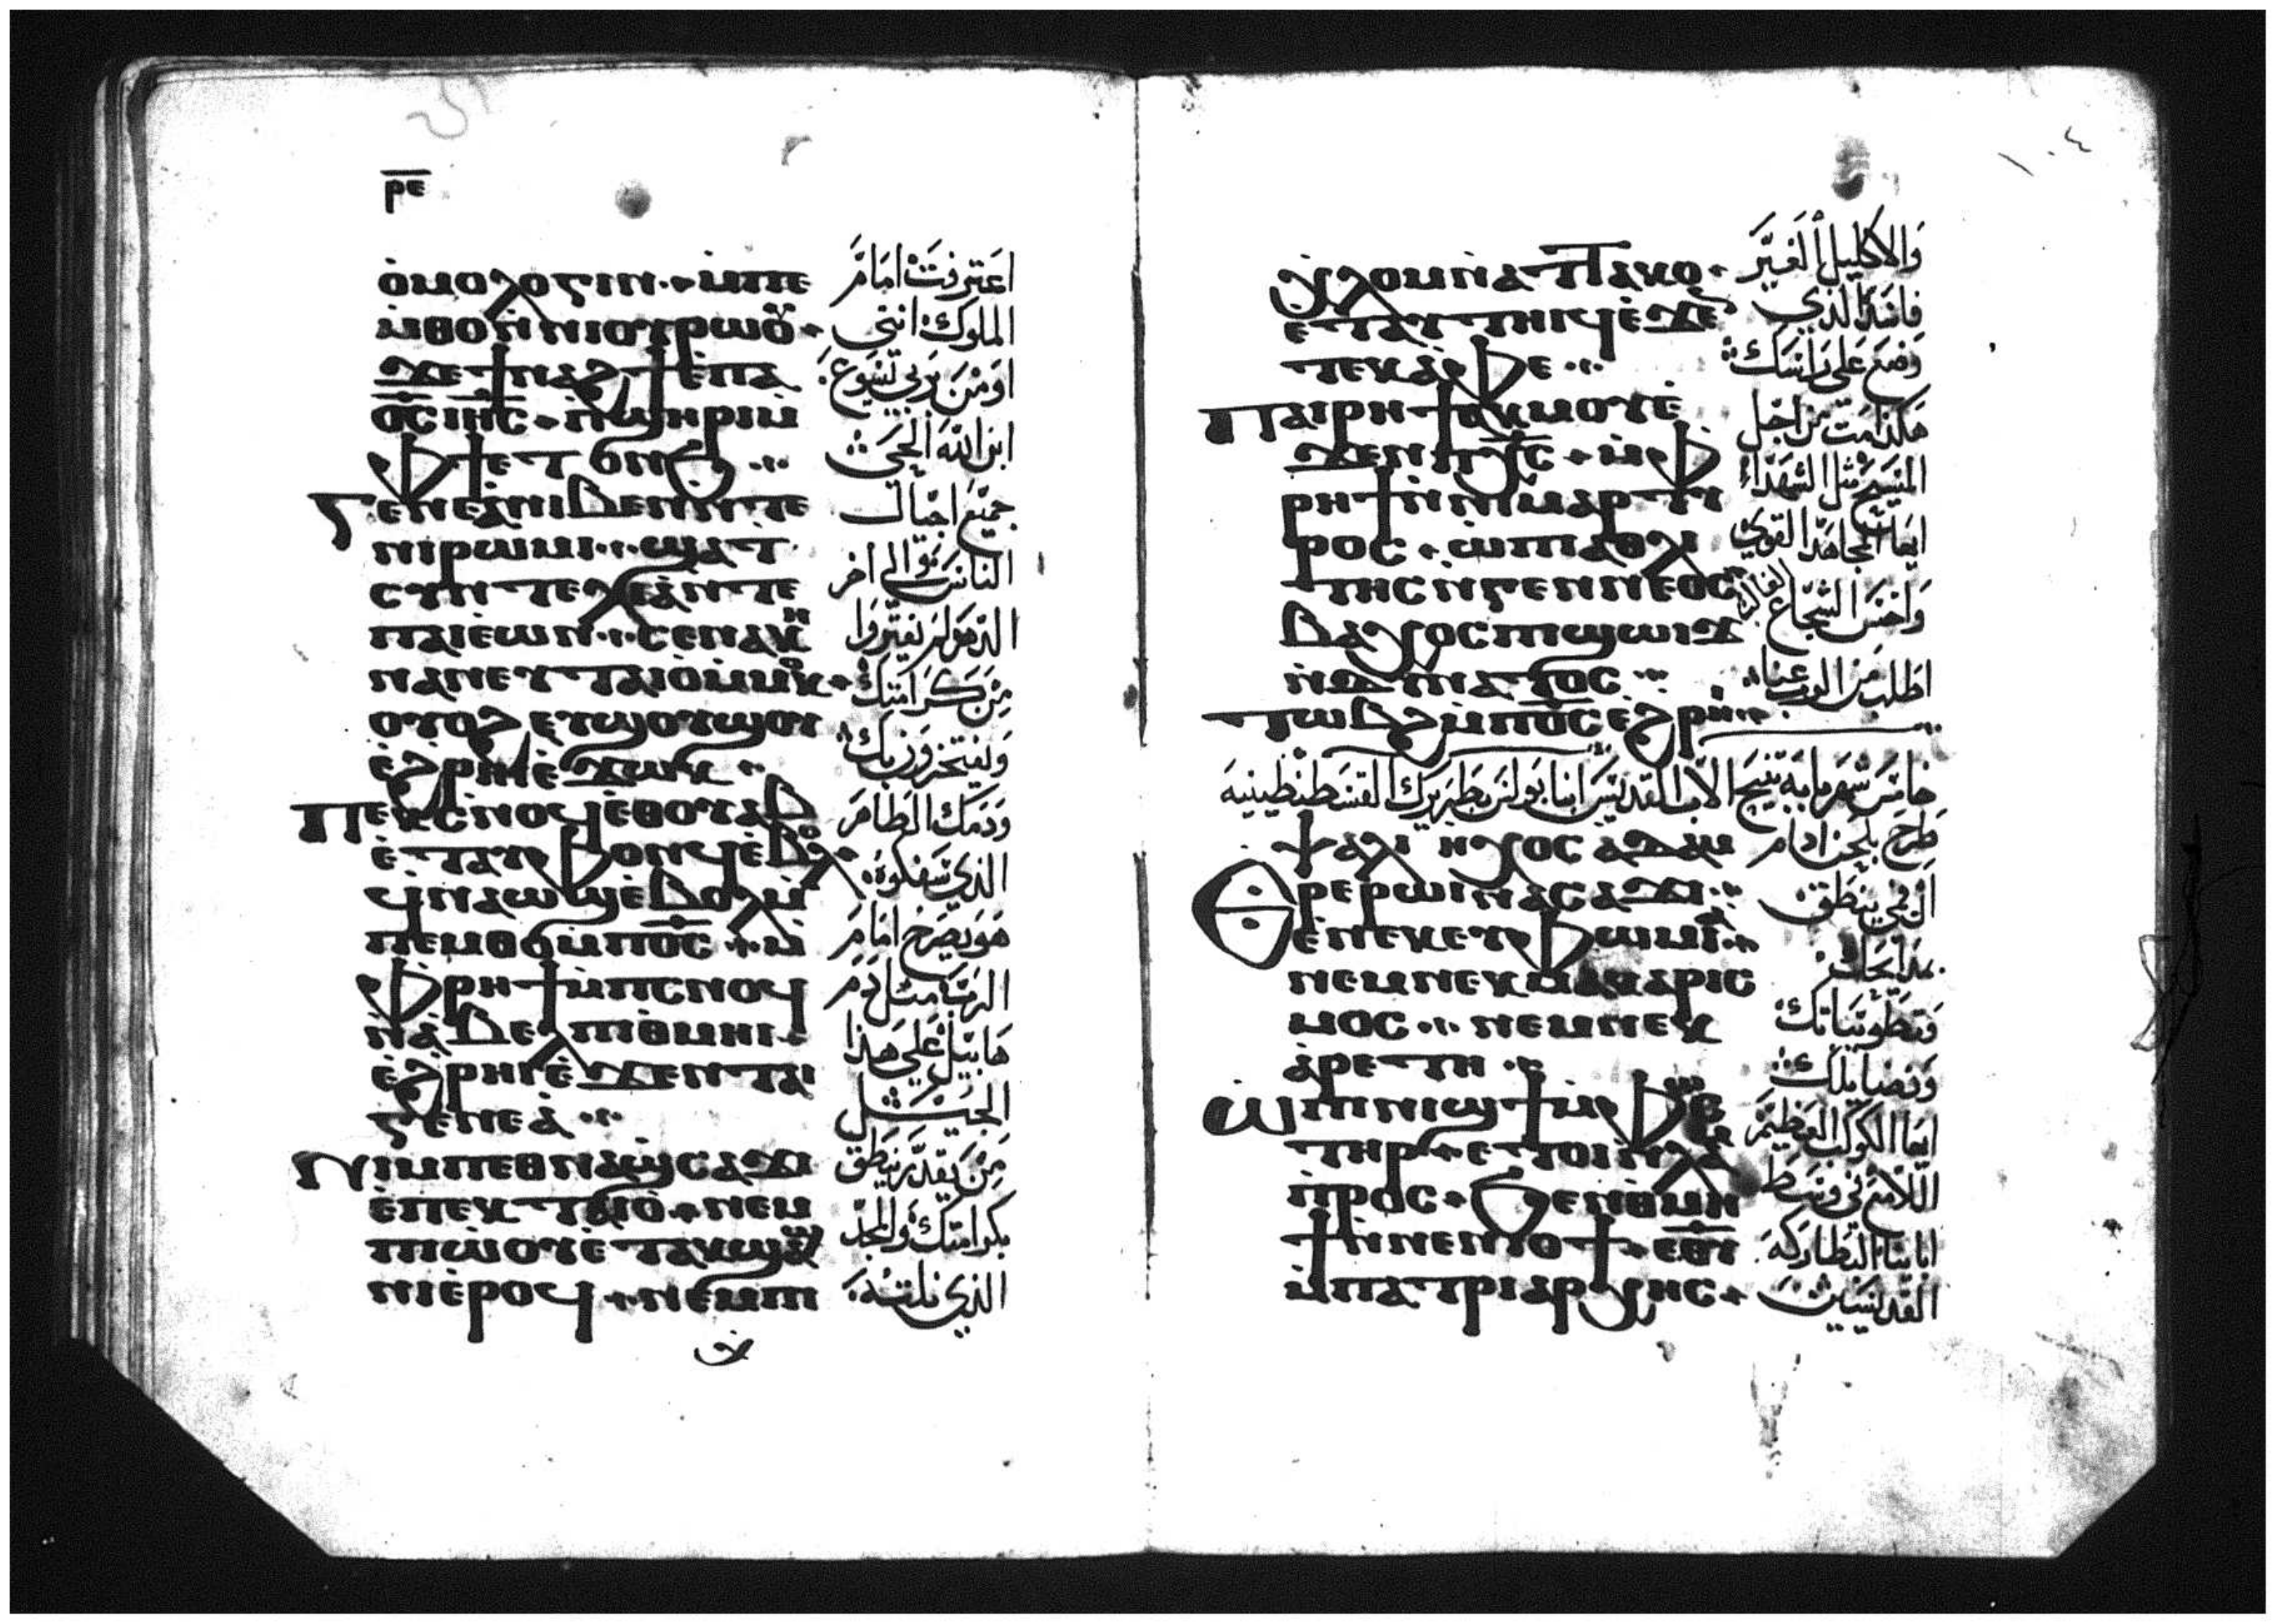 ⲣⲉ
ⲟ̀ⲙⲟⲗⲟⲅⲓⲛ· ⲙ̀ⲡⲉ
ⲙ̀ⲑⲟ ⲛ̀ⲛⲓⲟⲩⲣⲱⲟⲩ
ϫⲉϯⲛⲁϩϯⲉ̀ⲡⲁ
ⲟ̅ⲥ̅ ⲓⲏ̅ⲥ̅ ⲡϣⲏⲣⲓ ⲙ̀
ⲫϯⲉⲧⲟⲛϧ
ⲅⲉⲛⲉⲁ̀ⲛⲓⲃⲉⲛ ⲛ̀ⲧⲉ
ⲛⲓⲣⲱⲙⲓ· ϣⲁⲧ
ⲥⲩⲛⲧⲉⲗⲉⲓⲁ̀ⲛ̀ⲧⲉ
ⲡⲁⲓⲉ̀ⲱⲛ· ⲥⲉⲛⲁⲕⲏⲛ
ⲛⲁⲛⲉⲩⲧⲁⲓⲟ̀ⲙ̀ⲙⲟⲕ
ⲟⲩⲟϩ ⲉⲩϣⲟⲩϣⲟⲩ
ⲉ̀ϩⲣⲏⲓⲉ̀ϫⲱⲕ
ⲡⲉⲕⲥⲛⲟϥⲉⲑⲟⲩⲁⲃ
ⲉ̀ⲧⲁⲩⲫⲟⲛϥⲉ̀ⲃⲟⲗ
ϥ̀ⲛⲁⲱϣⲉ̀ⲃⲟⲗⲙ̀
ⲡⲉⲙⲑⲟⲙ̀ⲡⲟ̅ⲥ̅ ⲙ̀
ⲫⲣⲏϯⲙ̀ⲡⲥⲛⲟϥ
ⲛ̀ⲁ̀ⲃⲉⲗⲡⲓⲑⲙⲏⲓ
ⲉ̀ϩⲣⲏⲓⲉ̀ϫⲉⲛⲧⲁⲓ
ⲅⲉⲛⲉⲁ̀
ⲛⲓⲙⲡⲉⲑⲛⲁϣⲥⲁϫⲓ
ⲉ̀ⲡⲉⲕⲧⲁⲓⲟ̀ ⲛⲉⲙ
ⲡⲓⲱ̀ⲟⲩⲉ̀ⲧⲁⲕϣⲁϣ
ⲛⲓⲉ̀ⲣⲟϥ ⲛⲉⲙⲡⲓ
اعترفت امام
الملوك انني
اومن بربي يسوع
ابن الله الحي
جميع اجيال
الناس الى اخر
الدهور لم يفتروا
من كرامتك
ويفتخرون بك
ودمك الطاهر
الذي سفكوه
هو يصرخ امام
الرب مثل دم
هابيل على هذا
الجيل
من يقدر ينطق
بكرامتك والمجد
الذي نلته
١٠٤
ⲭ̀ⲗⲟⲙⲛ̀ⲁⲧⲧⲁⲕⲟ
ⲉⲧⲁⲩⲧⲏⲓϥⲉ̀ϫⲉⲛ
ⲧⲉⲕⲁ̀ⲫⲉ
ⲡⲁⲓⲣⲏϯⲁⲕⲙⲟⲩⲉ̀
ϫⲉⲛⲡⲭ̅ⲥ̅ ⲙ̀ⲫ
ⲣⲏϯⲛ̀ⲛⲓⲙⲁⲣⲧⲩ
ⲣⲟⲥ ⲱ̀ⲡⲓⲁⲑⲗⲓ
ⲧⲏⲥ ⲛ̀ⲅⲉⲛⲛⲉⲟⲥ
ⲧⲱⲃϩ ⲙ̀ⲡⲟ̅ⲥ̅ ⲉϩⲣⲏⲓ
والاكليل الغير
فاسد الذي
وضع على راسك
هكذا مت من اجل
المسيح مثل الشهداء
ايها المجاهد القوي
اطلب من الرب عنا
خامس شهر بابه تنيح الاب القديس انبا بولس بطريرك القسطنطينية
ⲯⲁⲗⲓ ⲏⲭⲟⲥ ⲁⲇⲁⲙ
ⲉⲣⲉⲣⲱⲓⲛⲁⲥⲁϫⲓ
ⲉ̀ⲛⲉⲕⲉⲩⲫⲱⲙⲓⲁ
ⲛⲉⲙⲛⲉⲕⲙⲁⲕⲁⲣⲓⲥ
ⲙⲟⲥ ⲛⲉⲙⲛⲉⲕ
ⲁ̀ⲣⲉⲧⲏ
ⲱ̀ⲡⲓⲛⲓϣϯⲙ̀ⲫⲱⲥ
ⲧⲏⲣ ⲉⲧⲟⲓⲛ̀ⲗⲁ
ⲙ̀ⲡⲣⲟⲥ ϧⲉⲛⲑⲙⲏ
ϯⲛ̀ⲛⲉⲛⲓⲟϯ ⲉ̅ⲑ̅ⲩ̅
ⲙ̀ⲡⲁⲧⲣⲓⲁⲣⲭⲏⲥ
طرح بلحن ادام
الفم ينطق
بمدايحك
وتطويباتك
وفضايلك
ايها الكوكب العظيم
اللامع في وسط
ابائنا البطاركه
القديسين